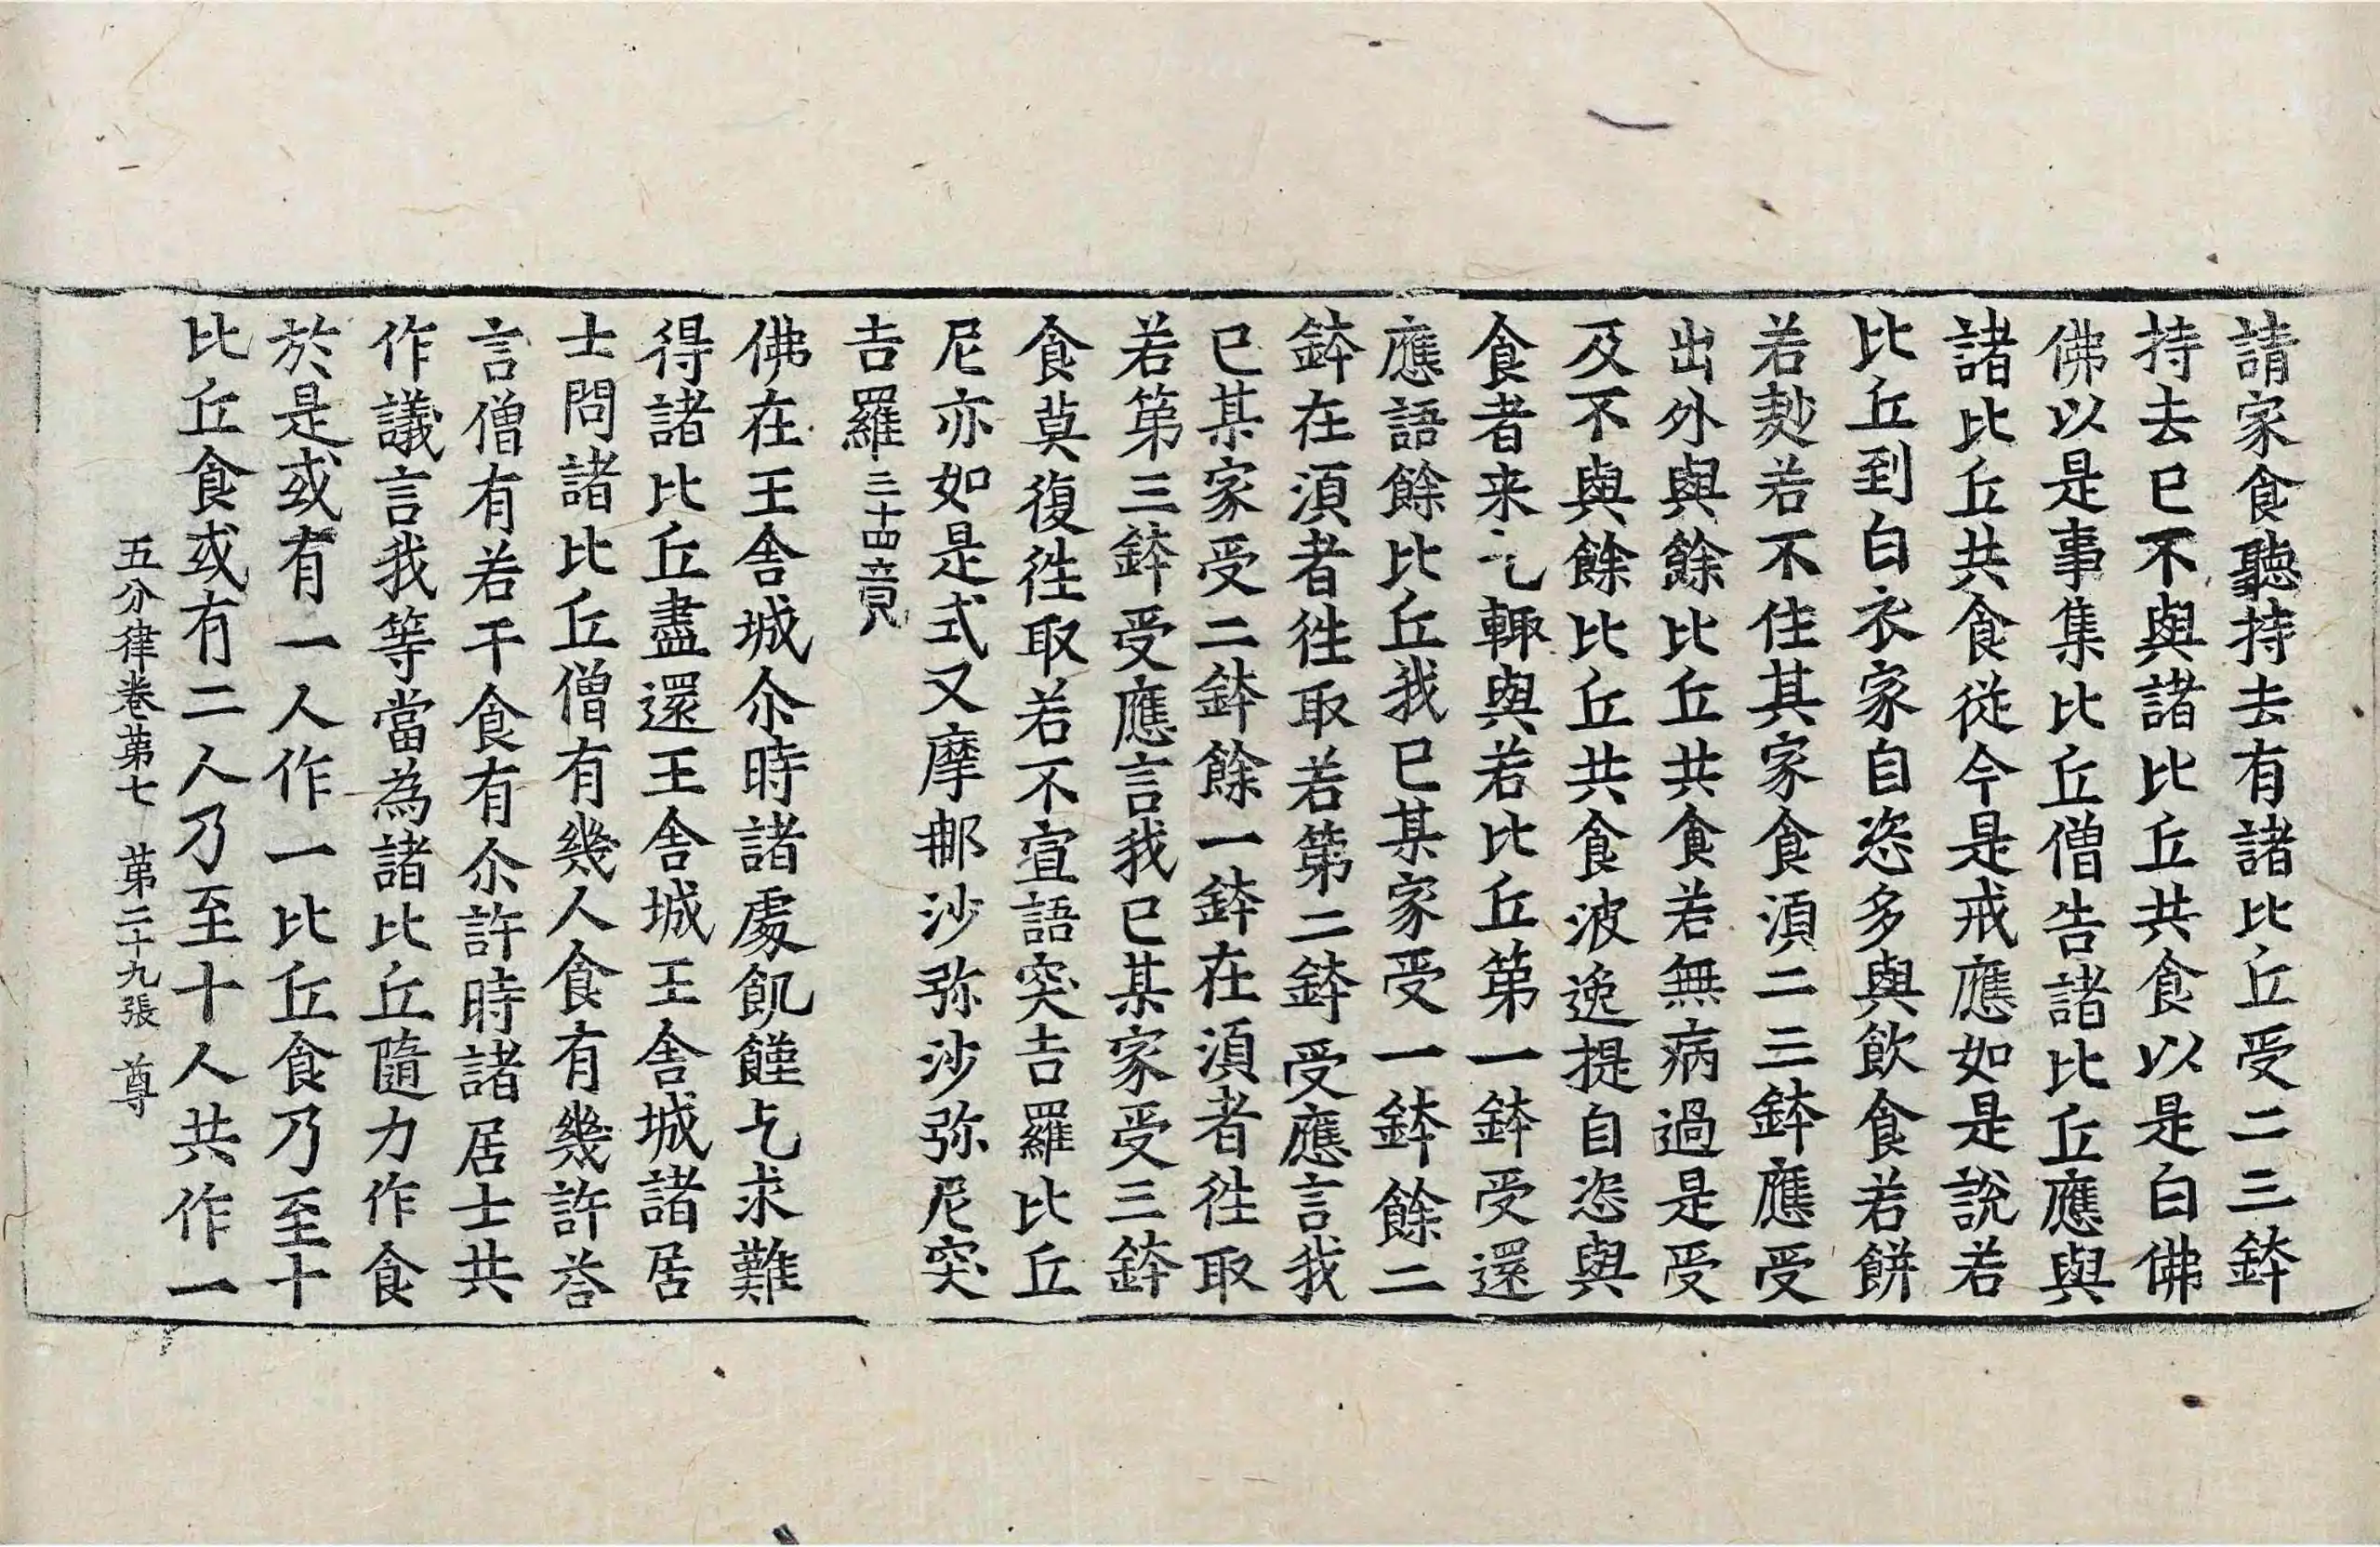 請家食聽持去有諸比丘受二三鉢
持去已不與諸比丘共食以是白佛
佛以是事集比丘僧告諸比丘應與
諸比丘共食從今是戒應如是說若
比丘到白衣家自恣多與飲食若餅
若麨若不住其家食湏二三鉢應受
出外與餘比丘共食若無病過是受
及不與餘比丘共食波逸提自恣與
食者来乞輙與若比丘第一鉢受還
應語餘比丘我已某家受一鉢餘二
鉢在湏者徃取若第二鉢受應言我
已某家受二鉢餘一鉢在湏者徃取
若第三鉢受應言我已某家受三鉢
食莫復徃取若不宣語突吉羅比丘
尼亦如是式叉摩郍沙弥沙弥尼突
吉羅三十四竟
佛在王舍城尒時諸處飢饉乞求難
得諸比丘盡還王舍城王舍城諸居
士問諸比丘僧有幾人食有幾許荅
言僧有若干食有尒許時諸居士共
作議言我等當為諸比丘隨力作食
於是或有一人作一比丘食乃至十
比丘食或有二人乃至十人共作一
五分律卷第七　第二十九張　尊